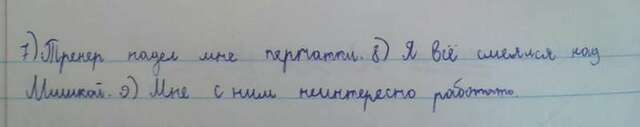 7) Тренер надел мне перчатки. 8) Я всё смеялся над
Мишкой. 9) Мне с ним неинтересно работать.